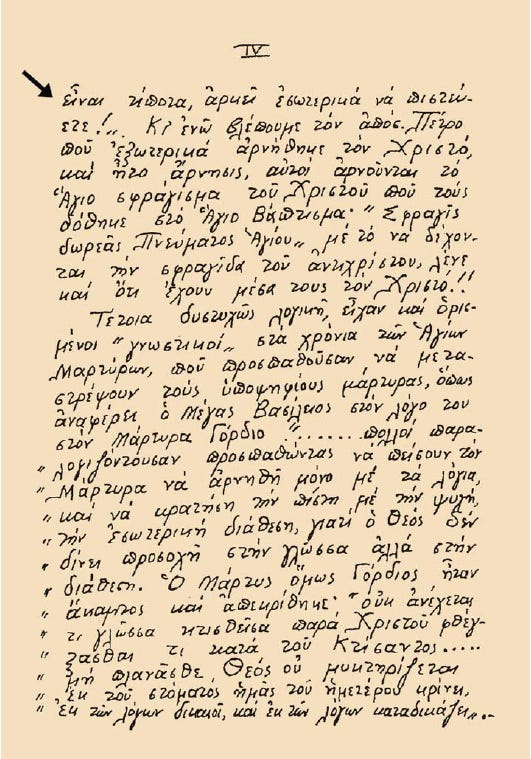 IV
εἶναι τίποτα, ἀρκεῖ ἐσωτερικά νά πιστεύ-
ετε!„ Κι ἐνῶ βλέπουμε τόν ἀπόσ. Πέτρο
πού ἐξωτερικά ἀρνήθηκε τόν Χριστό,
καί ἦτο ἄρνησις, αὐτοί ἀρνοῦνται τό
Ἅγιο σφράγισμα τοῦ Χριστοῦ πού τούς
δόθηκε στό Ἅγιο Βάπτισμα· " Σφραγίς
δωρεᾶς Πνεύματος Ἁγίου„ μέ τό νά δέχον-
ται τήν σφραγίδα τοῦ ἀντιχρίστου, λένε
καί ὅτι ἔχουν μέσα τους τόν Χριστό!!
Τέτοια δυστυχῶς λογική, εἶχαν καί ὁρισ-
μένοι "γνωστικοί„ στά χρόνια τῶν Ἁγίων
Μαρτύρων, πού προσπαθοῦσαν νά μετα-
στρέψουν τούς ὑποψηφίους μάρτυρας, ὅπως
ἀναφέρει ὁ Μέγας Βασίλειος στόν λόγο του
στόν Μάρτυρα Γόρδιο "........πολλοί παρα-
" λογιζόντουσαν προσπαθῶντας νά πείσουν τόν
" Μάρτυρα νά ἀρνηθῆ μόνο μέ τά λόγια,
" καί νά κρατήση τήν πίστη μέ τήν ψυχή,
" τήν ἐσωτερική διάθεση, γιατί ὁ Θεός δέν
" δίνει προσοχή στήν γλῶσσα ἀλλά στήν
" διάθεση. Ὁ Μάρτυς ὅμως Γόρδιος ἦταν
" ἄκαμπτος καί ἀπεκρίθηκε· "οὐκ ἀνέχεται
" τι γλῶσσα κτισθεῖσα παρά Χριστοῦ φθέγ-
" ξασθαι τι κατά τοῦ Κτίσαντος.....
" μή πλανᾶσθε, Θεός οὐ μυκτηρίζεται
" ἐκ τοῦ στόματος ἡμᾶς τοῦ ἡμετέρου κρίνει,
" ἐκ τῶν λόγων δικαιοῖ, καί ἐκ τῶν λόγων καταδικάζει„..